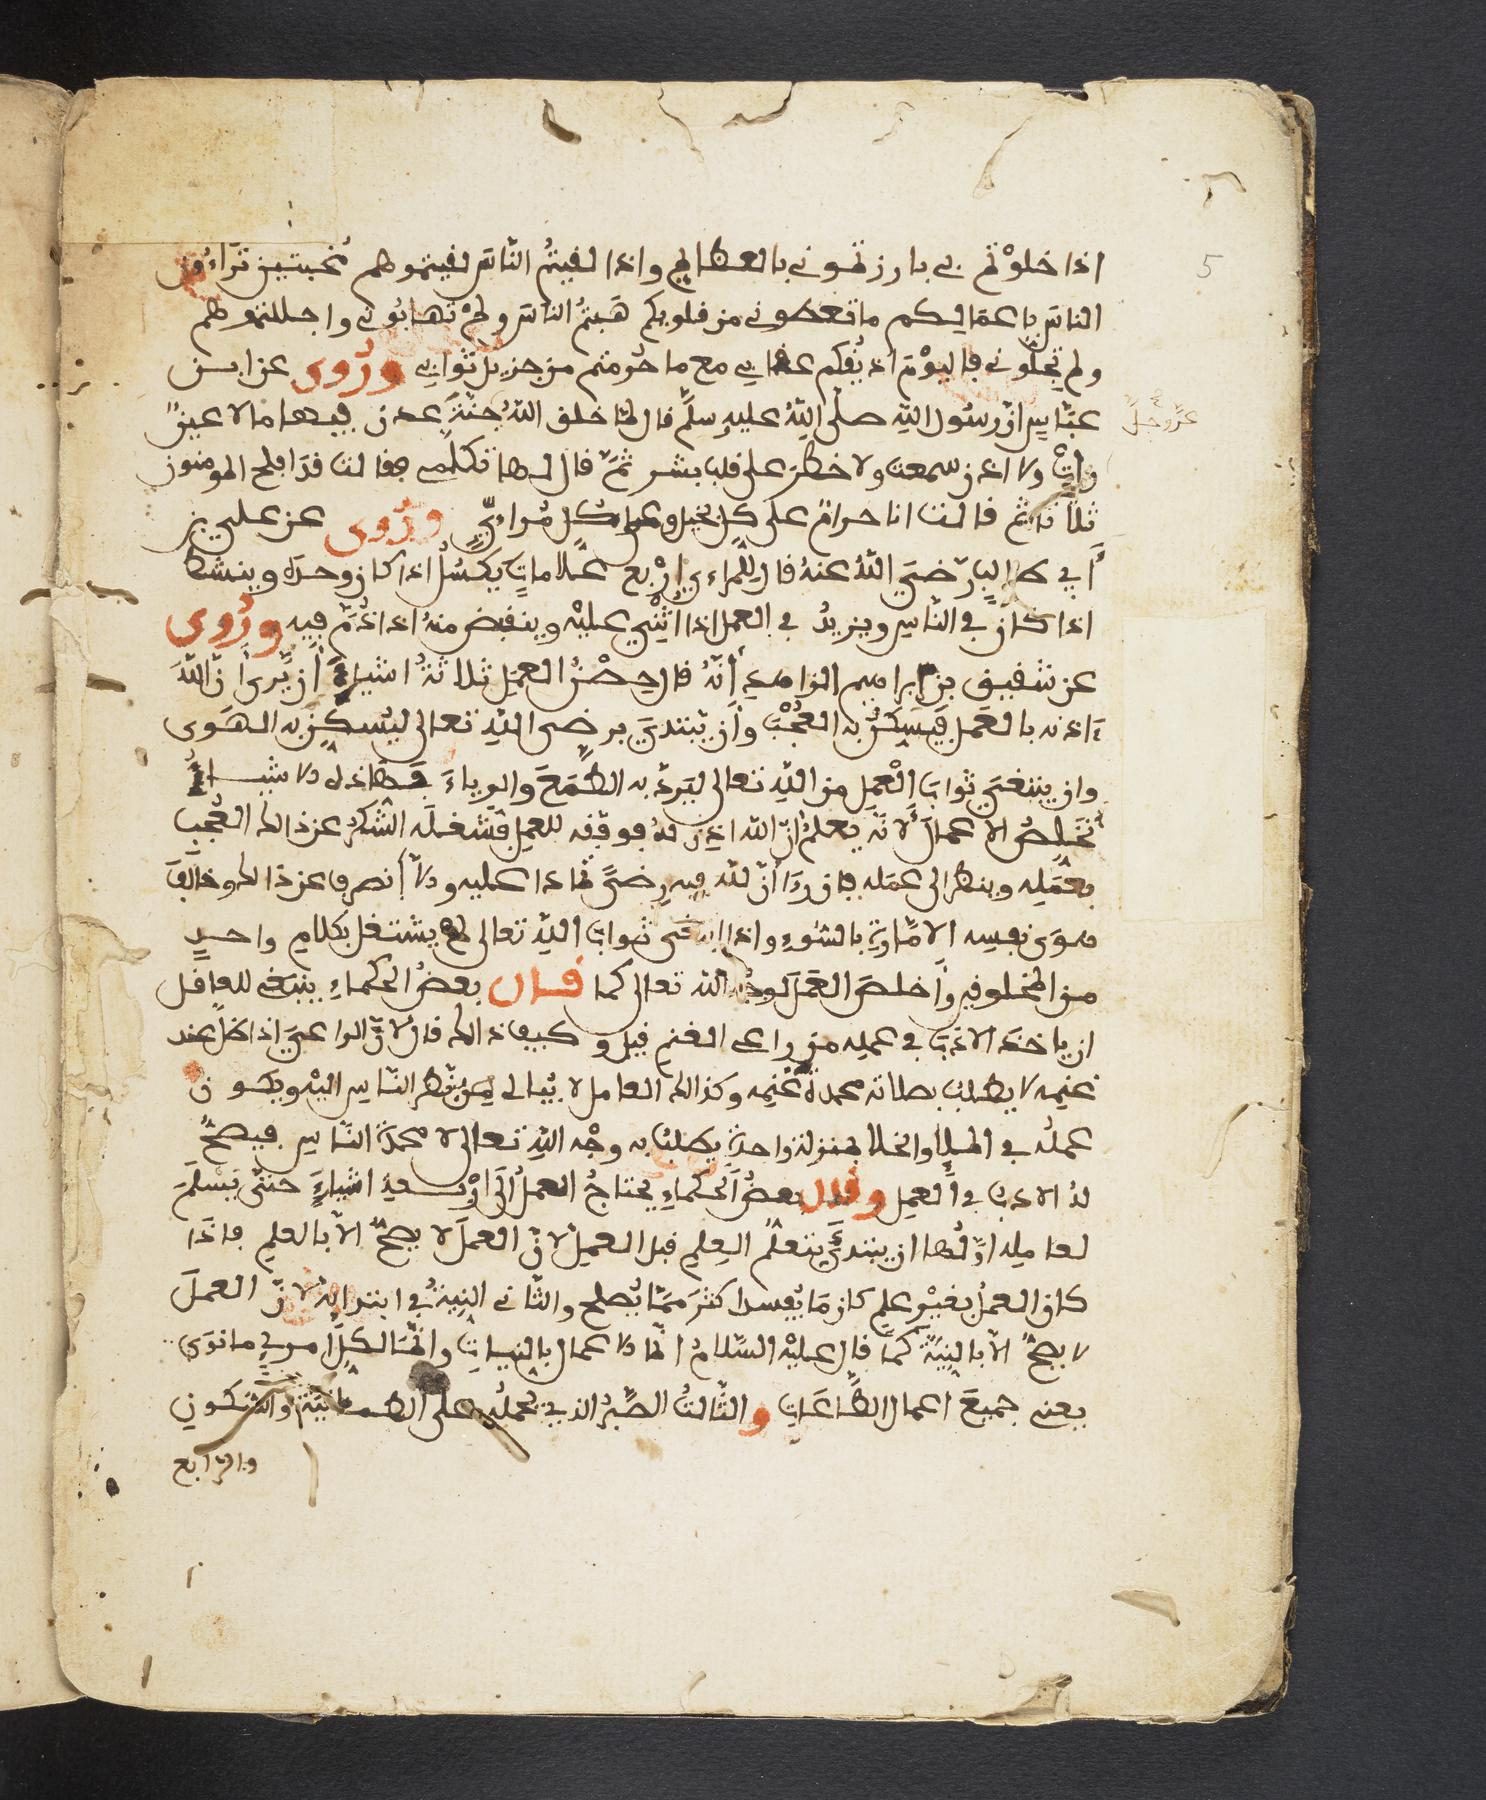 اذا خلوتم بي بارزتموني بالعظايم واذا لقيتم الناس لقيتموهم مخبتين تراءون
الناس باعمالكم ما تعطوني من قلوبكم هبتم الناس ولم تهابوني واجللتموهم
ولم تجلوني فاليوم اذيقكم عقابي مع ما حرمتم من جزيل ثوابي وروى عن ابن
عباس ان رسول الله صلى الله عليه وسلم قال لما خلق الله جنة عدن فيها ما لا عين
عز وجل
رات ولا اذن سمعت ولا خطر على قلب بشر ثم قال لها تكلمي فقالت قد افلح المومنون
ثلاثا ثم قالت انا حرام على كل بخيل وعلى كل مراءي وروى عن علي بن
أبي طالب رضي الله عنه قال للمراءي اربع علامات يكسل اذا كان وحده وينشط
اذا كان في الناس ويزيد في العمل اذا اثني عليه وينقص منه اذا ذم فيه وروى
عن شقيق بن ابراهيم الزاهد أنه قال حصن العمل ثلاثة اشياء أن يرى أن الله
اذنه بالعمل فيسكن به العجب وأن يبتدي برضى الله تعالى ليسكن به الهوى
وان يبتغي ثواب العمل من الله تعالى ليرد به الطمع والرياء فبهذه الاشياء
تخلص الاعمال لانه يعلم ان الله اذن له فوفقه للعمل فشغله الشكر عن ذالك العجب
بعمله وينظر الى عمله فان رءا أن لله فيه رضى غدا عليه والا انصرف عن ذالك وخالف
هوى نفسه الامارة بالسوء واذا ابتغى ثواب الله تعالى لم يشتغل بكلام واحد
من المخلوقين وأخلص العمل لوجه الله تعالى كما قال بعض الحكماء ينبغي للعاقل
ان ياخذ الادب في عمله من راعي الغنم قيل وكيف ذالك قال لان الراعي اذا صلى عند
غنمه لا يطلب بصلاته محمدة غنمه وكذالك العامل لا يبالي من نظر الناس اليه ويكون
عمله في الملا والخلا بمنزلة واحدة يطلب به وجه الله تعالى لا محمدة الناس فيصح
له الادب في العمل وقال بعض الحكماء يحتاج العمل الى اربعة اشياء حتى يسلم
لعامله اولها ان يبتدي يتعلم العلم قبل العمل لان العمل لا يصح الا بالعلم فاذا
كان العمل بغير علم كان ما يفسد اكثر مما يصلح والثاني النية في ابتدائه لان العمل
لا يصح الا بالنية كما قال عليه السلام انما الاعمال بالنيات وانما لكل امرء ما نوى
يعني جميع اعمال الطاعات والثالث الصبر الذي يحمله على الطمانينة والسكون
والرابع
5